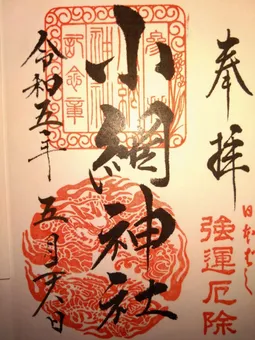 奉拝
日本ばし
強運厄除
小網神社
令和五年
五月
日